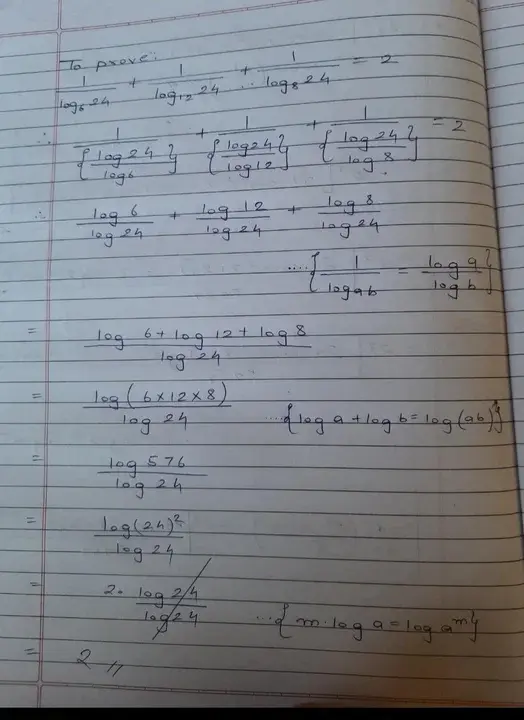 To prove:
1/log₆24 + 1/log₁₂24 + 1/log₈24 = 2
∴ 1/{log24/log6} + 1/{log24/log12} + 1/{log24/log8} = 2
∴ log 6/log 24 + log 12/log 24 + log 8/log 24
....{1/logab = log a/log b}
= log 6 + log 12 + log 8/log 24
= log(6×12×8)/log 24 ....{log a + log b = log(ab)}
= log 576/log 24
= log(24)²/log 24
= 2. log 24/log 24 ...{m. log a = log aᵐ}
= 2 //